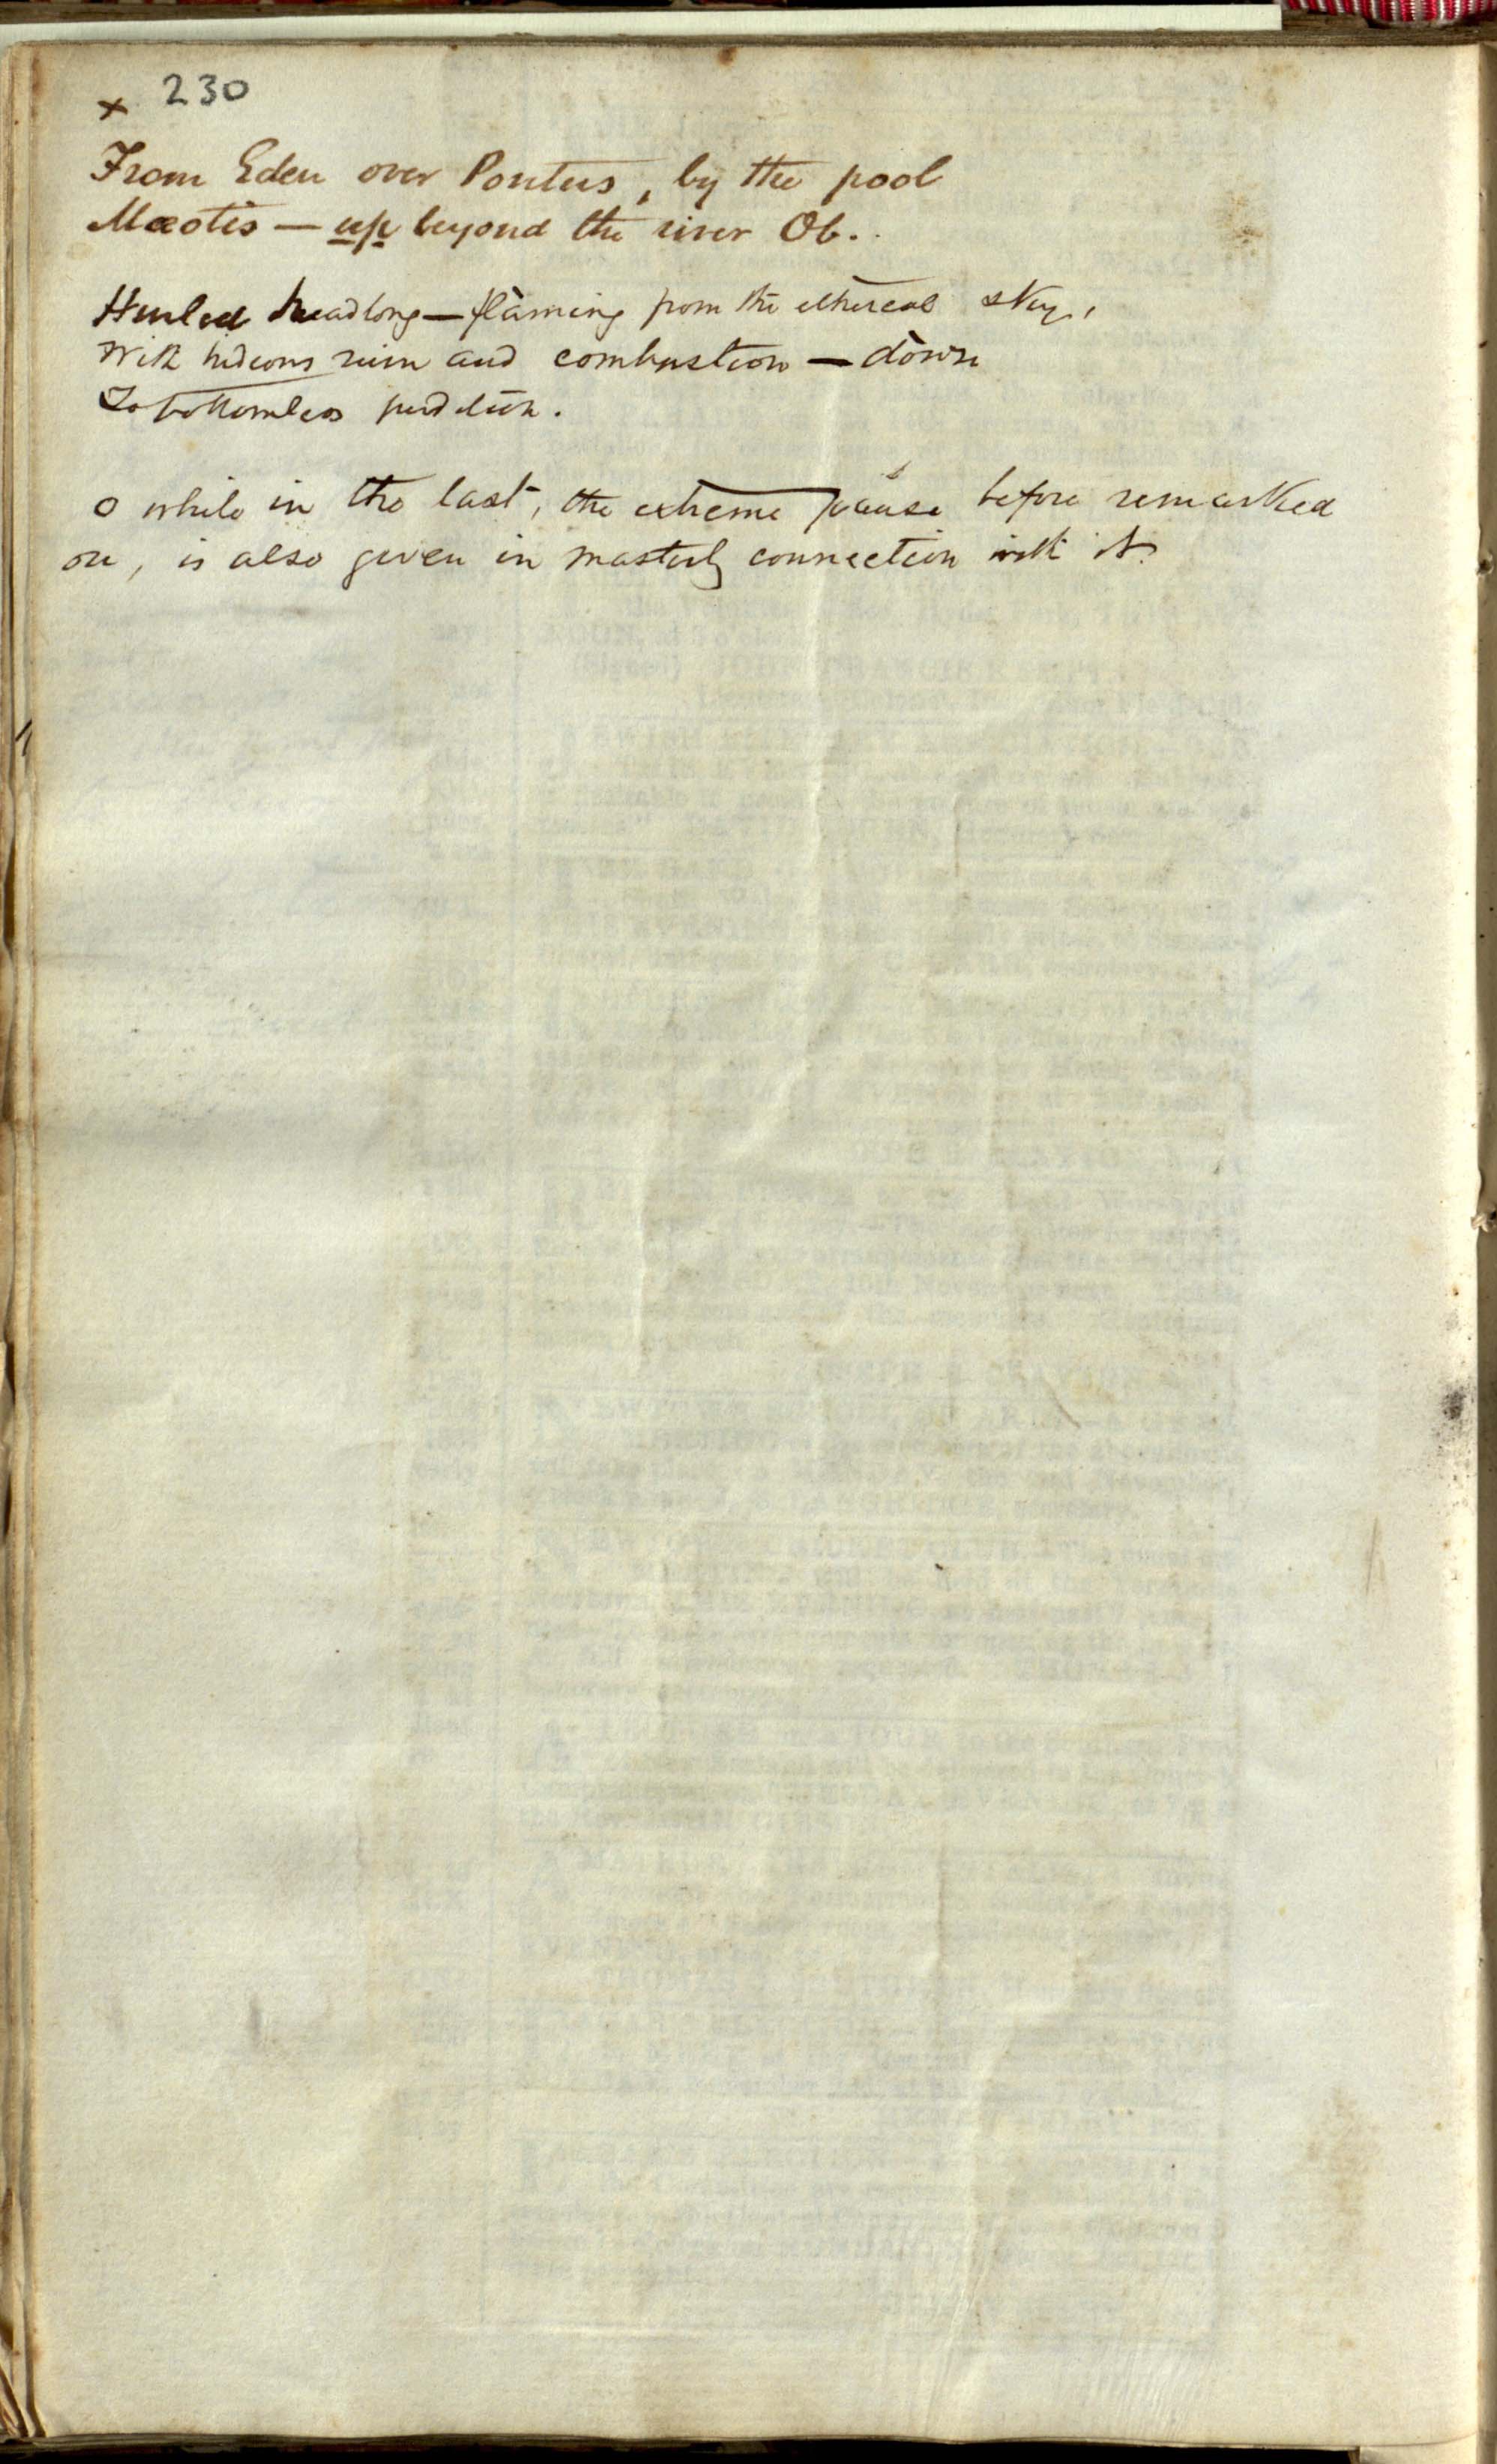 x 230
From Eden over Pontus, by the pool
Mæotis — up beyond the river Ob.
Hurled headlong — flàming from the ethereal sky,
With hideous ruin and combustion — dòwn
To bottomless perdition.
o while in the last, the extreme pause before remarked
on, is also given in masterly connection with it.